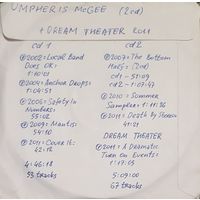 UMPHERIS McGEE (2cd)
+ DREAM THEATER 2011
cd 1
2002: Local Band
Does OK:
1:10:01
2004: Anchor Drops:
1:04:51
2006: Safety In
Numbers:
55:02
2009: Mantis:
54:10
2011: Cover It:
62:12
4:46:18
53 tracks
cd 2
2007: The Bottom
Half: (2cd)
cd1 - 51:09
cd2 - 1:07:47
2010: Sommer
Sampler: 1:11:36
2011: Death by Stereo:
41:21
DREAM THEATER
2011: A Dramatic
Turn on Events:
1:17:03
5:09:00
67 tracks